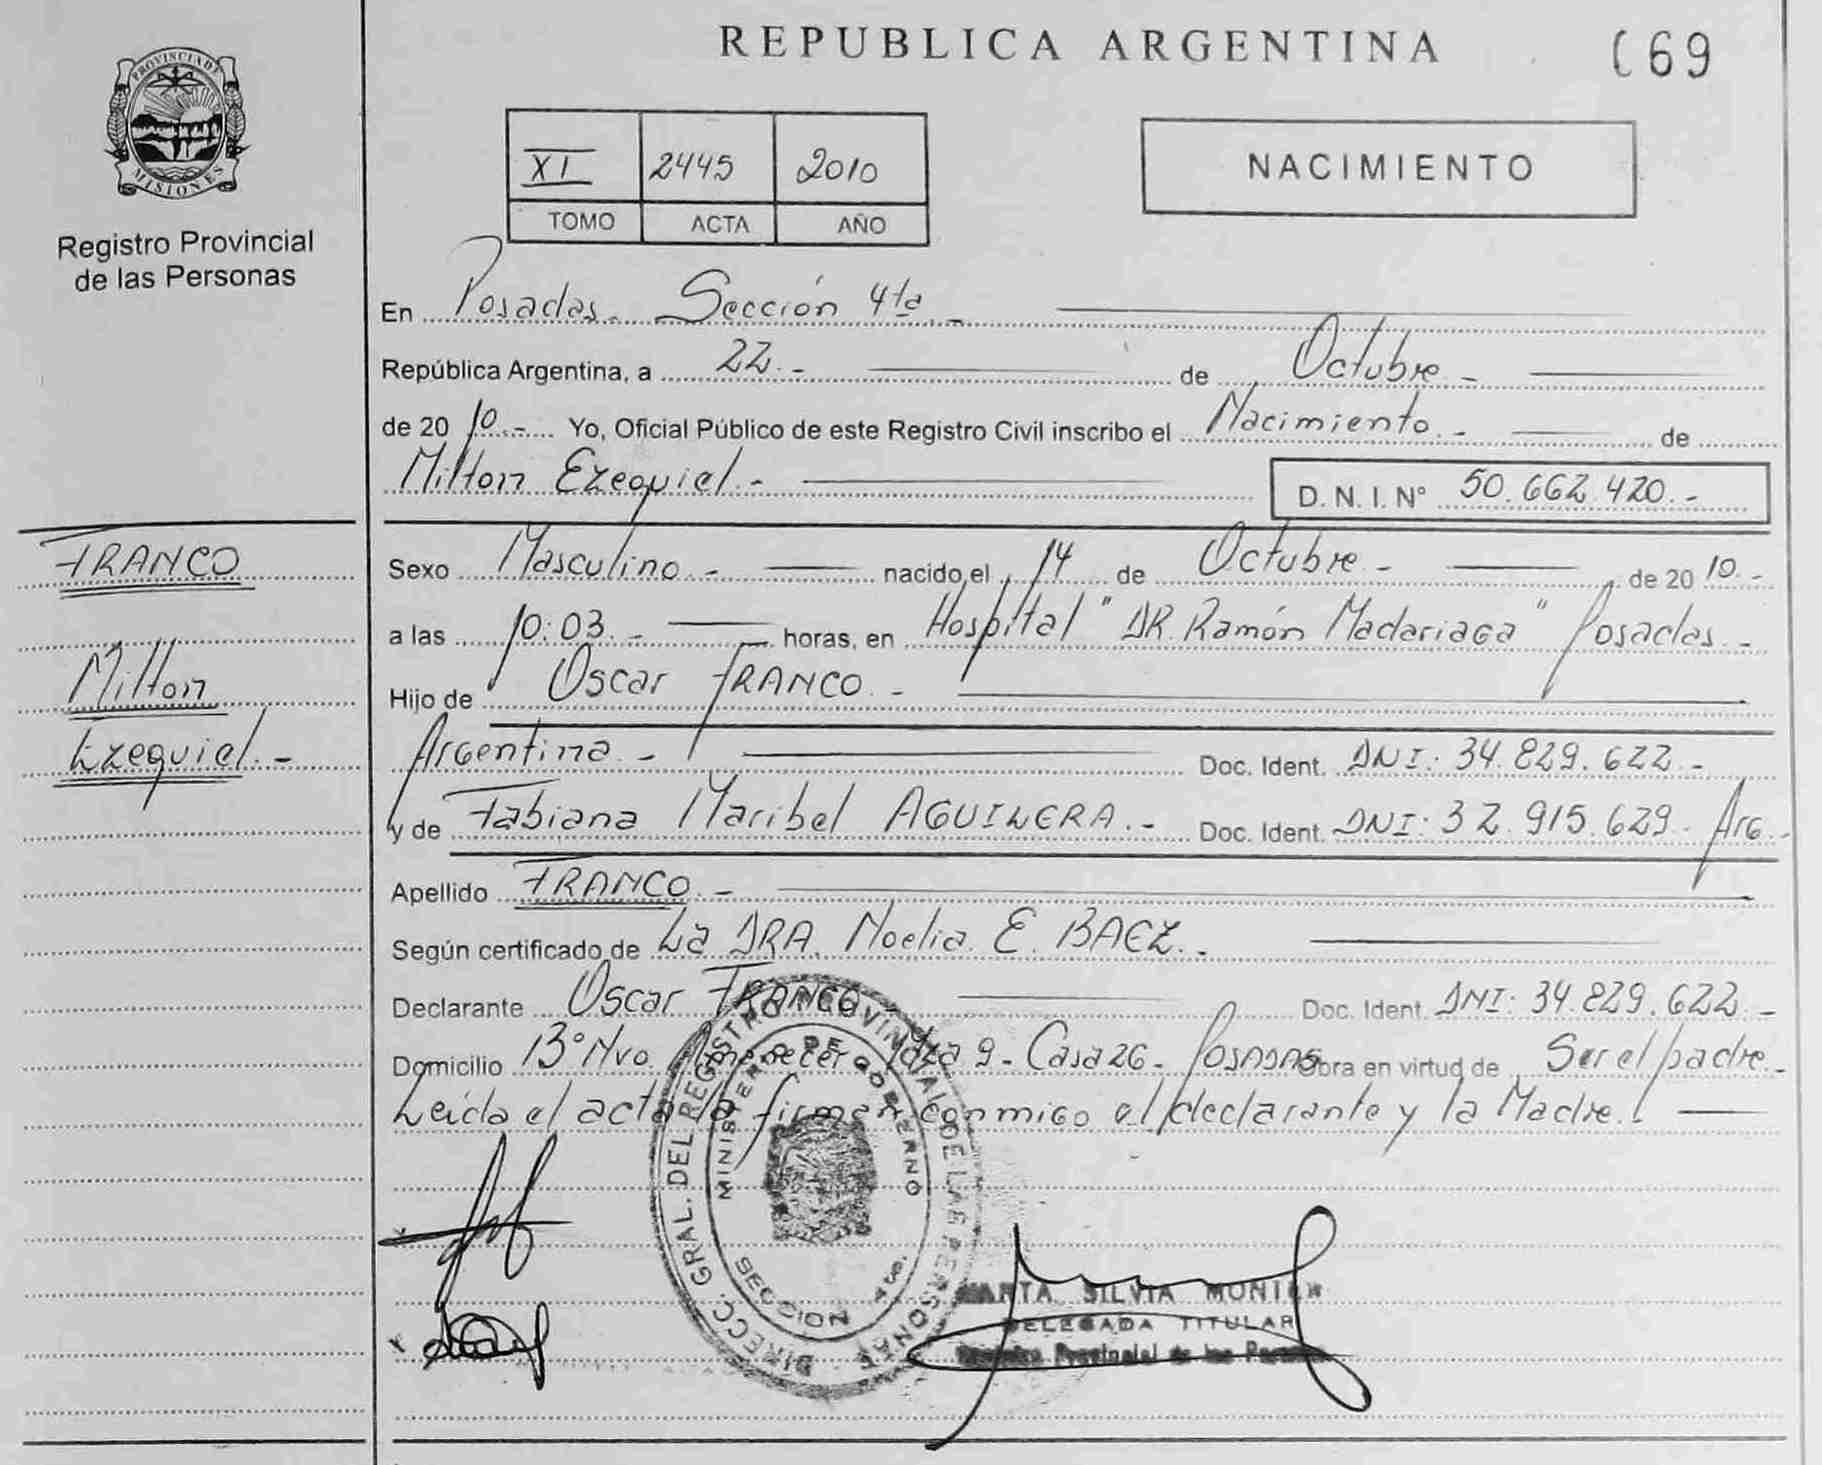 REPUBLICA ARGENTINA
69
PROVINCIA DE
MISIONES
Registro Provincial
de las Personas
XI 2445 2010
TOMO ACTA AÑO
NACIMIENTO
En Posadas. Sección 4ta.-
República Argentina, a 22.- de Octubre.-
de 20 10.- Yo, Oficial Público de este Registro Civil inscribo el Nacimiento.- de
Milton Ezequiel.- D. N. I. Nº 50.662.420.-
FRANCO
Milton
Ezequiel.-
Sexo Masculino.- nacido el 14 de Octubre.- de 20 10.-
a las 10:03.- horas, en Hospital "DR. Ramón Madariaga" Posadas.-
Hijo de Oscar FRANCO.-
Argentina.- Doc. Ident. DNI: 34.829.622.-
y de Fabiana Maribel AGUILERA.- Doc. Ident. DNI: 32.915.629.- Arg.-
Apellido FRANCO.-
Según certificado de La DRA. Noelia E. BAEZ.-
Declarante Oscar FRANCO.- Doc. Ident. DNI: 34.829.622.-
Domicilio 13º Nvo. Amanecer Mza 9 - Casa 26 - POSADAS Obra en virtud de Ser el padre.-
Leída el acta la firman conmigo el declarante y la Madre.
DIRECC. GRAL. DEL REGISTRO PROVINCIAL DE LAS PERSONAS
MINISTERIO DE GOBIERNO
SECCION 4ta.
MARTA SILVIA MUNIER
DELEGADA TITULAR
Registro Provincial de las Personas